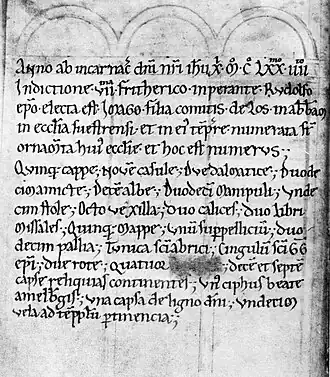 Anno ab incarnat̄ dn̄i nr̄i ihu xp̄. M̊. C̊. LXX̊. iiii
Indictione vii. fritherico inperante. Rvdolfo
ep̄o. electa est. Imago. filia comitis. de los. in abb̄am
in ecclīa suestrensi. et in ei᷒ tēpr̄e. numerata st̄
ornam̄ta hui᷒ eccl̄ie. et hoc est numerus:.
Qvinq; cappe.; Novem casule.; Dvedalmatice.; Dvode
cim amicte.; Decē albe.; Dvodecī Manipuli.; vnde
cim stole.; Octo vexilla.; dvo calices.; dvo libri
missales.; Qvinq; Mappe.; vnū suppelliciū.; dvo
decim pallia.; Tunica scī abrici.; Cingulū scī GG
ep̄i.; dve rote.; Qvatuor decē et septē
capse reliquias continentes.; vn᷒ ciphus beate
amelb̄gis.; vna capsa de ligno dn̄i.; vndecim
vela ad templū pertinencia.;